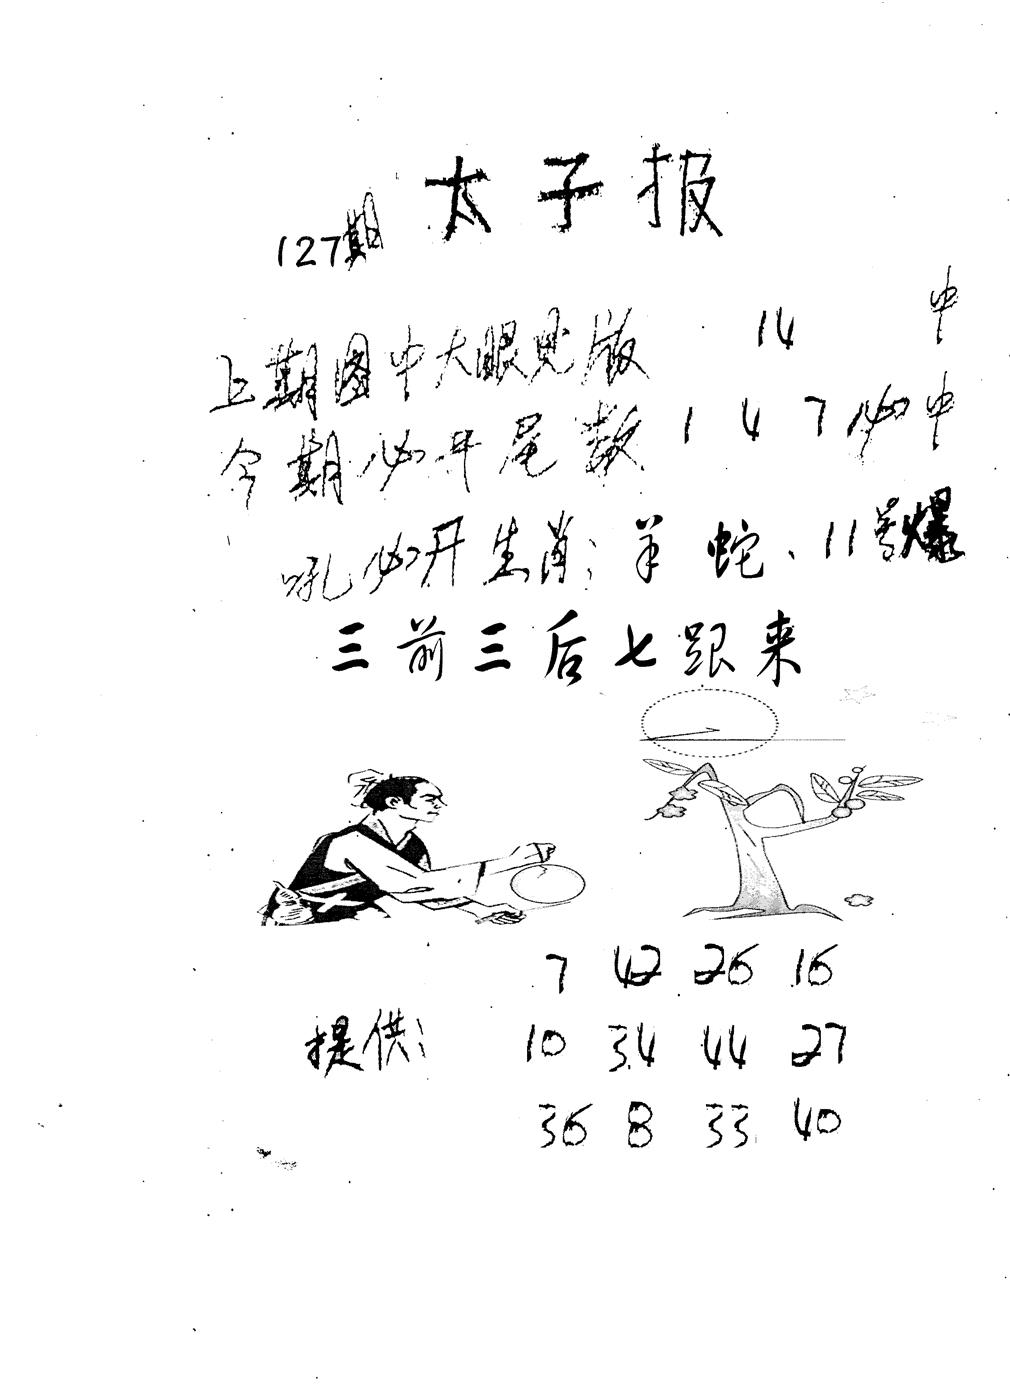 太子报
127期
上期图中大眼见版 14 中
今期必开尾数 1 4 7 必中
吼必开生肖：羊 蛇、11号爆
三前三后七跟来
7 42 26 16
提供： 10 34 44 27
36 8 33 40